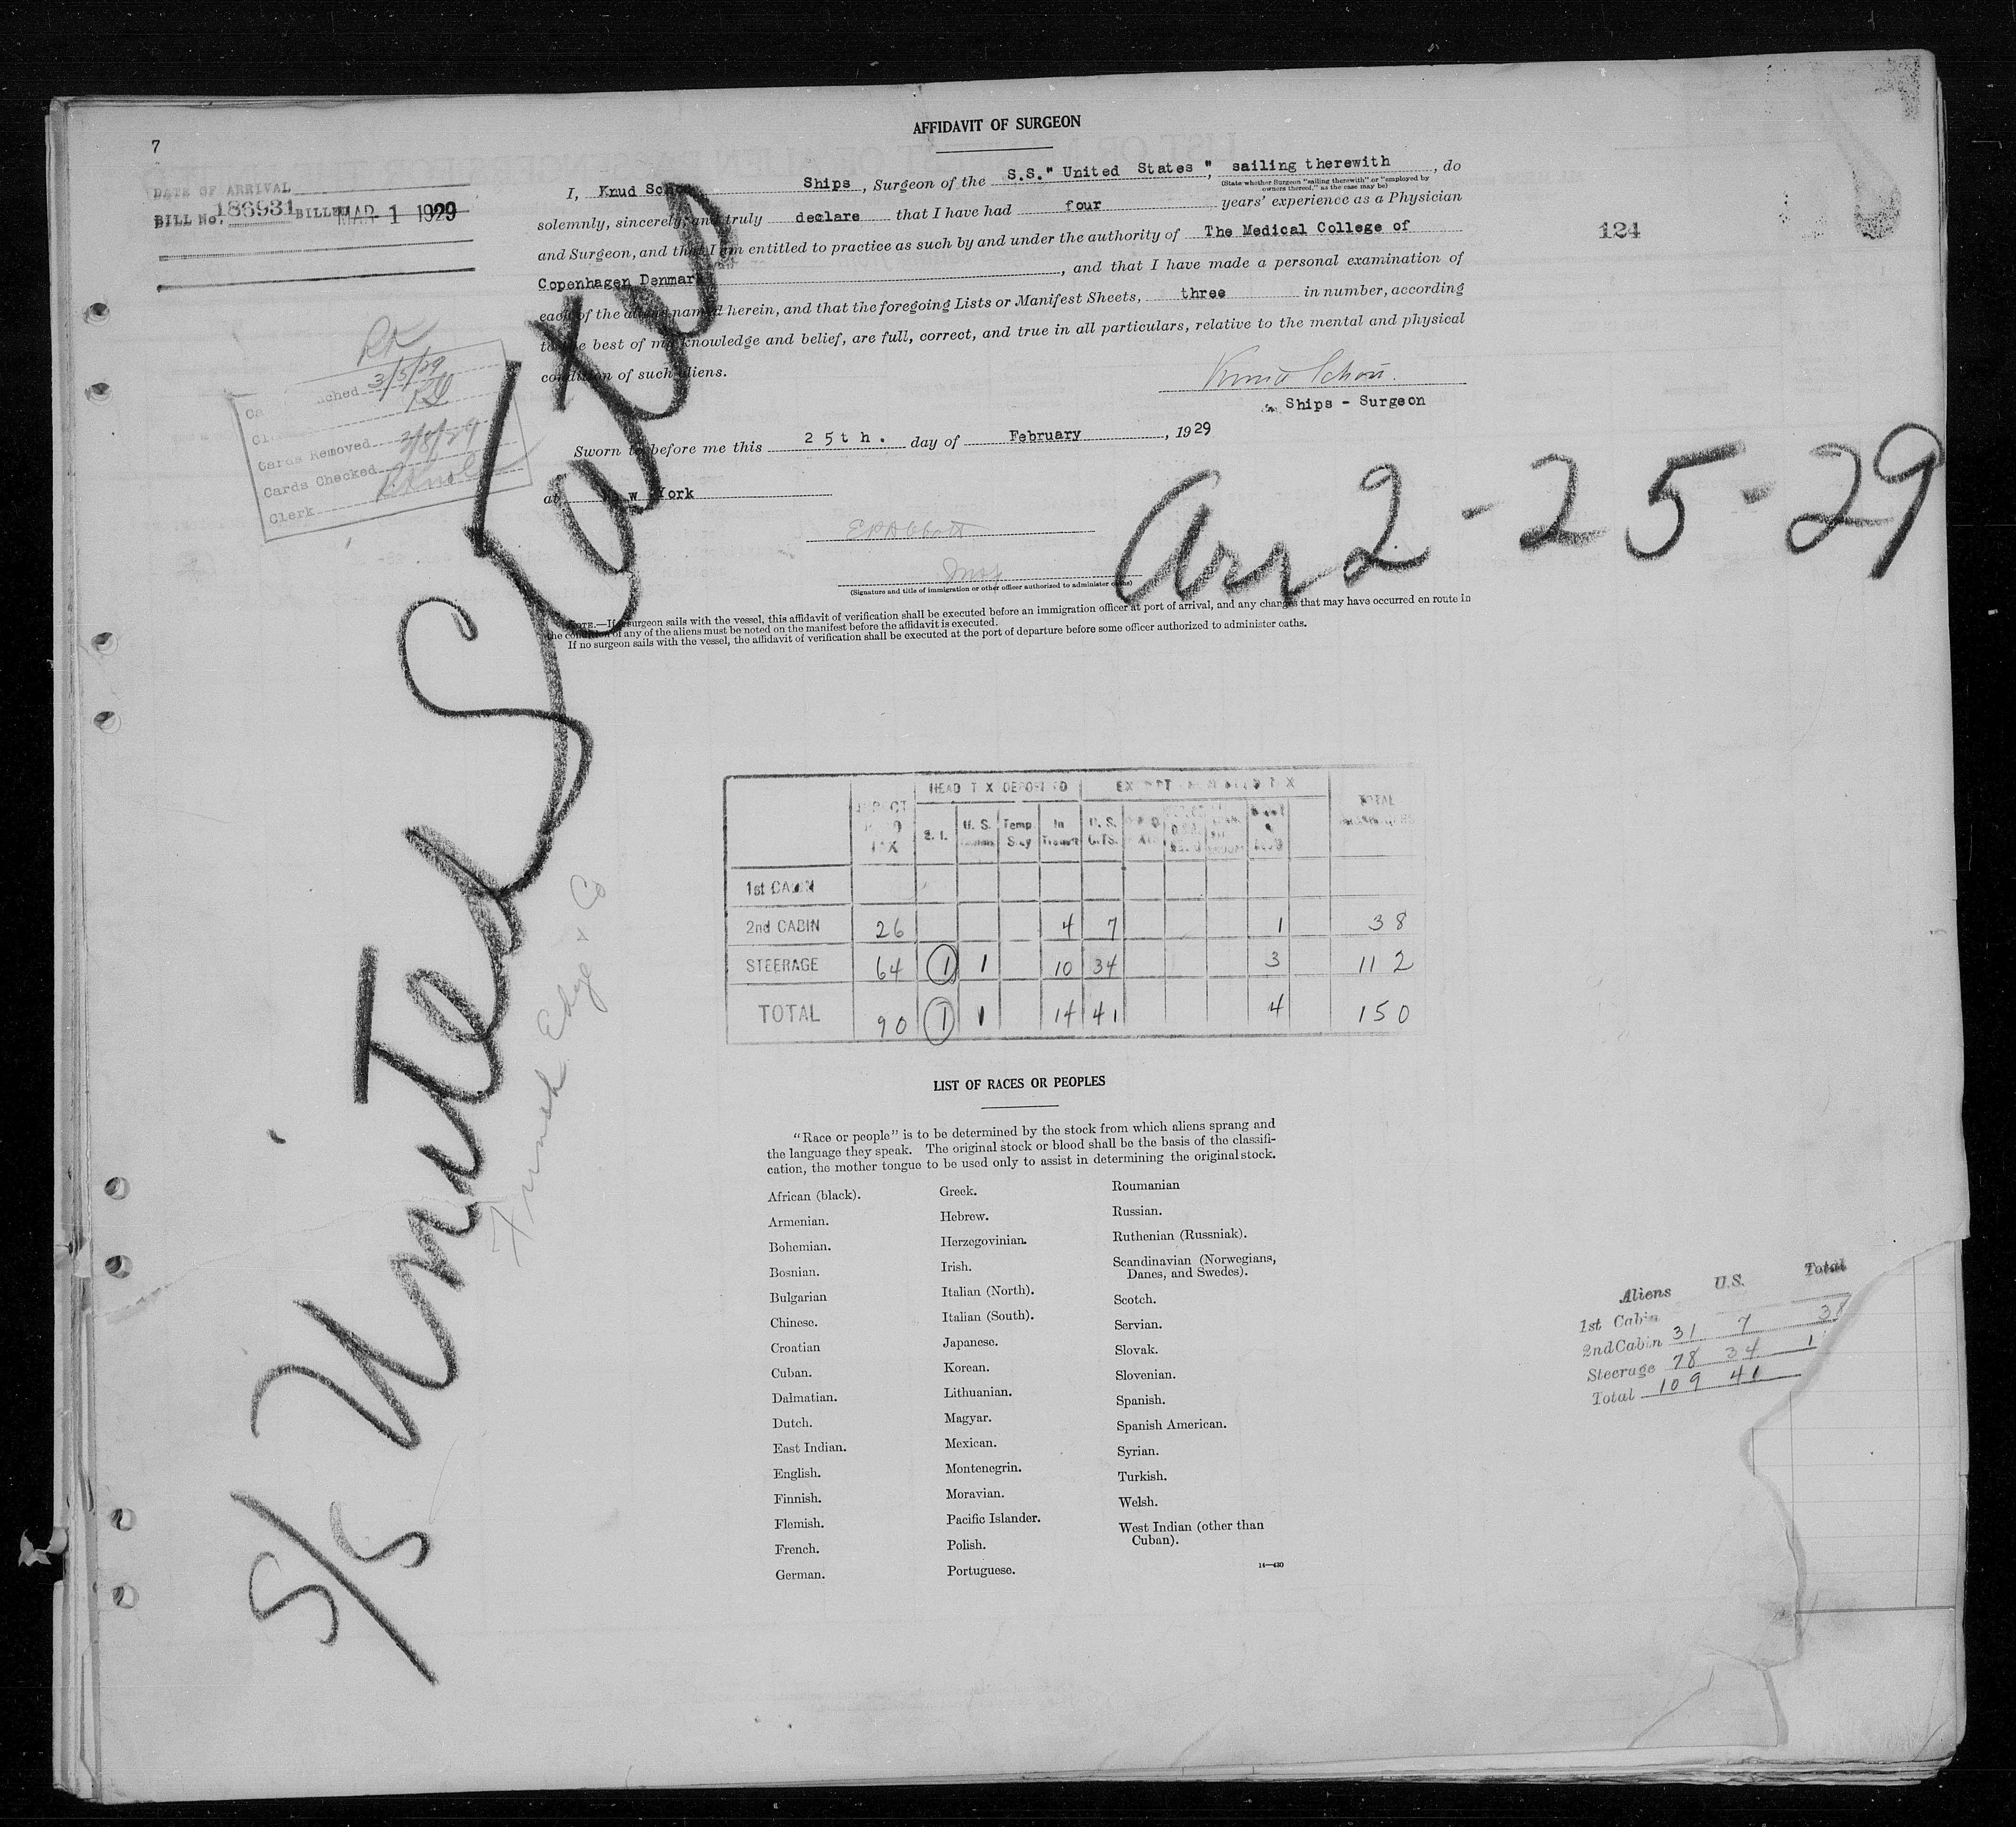 7
AFFIDAVIT OF SURGEON
DATE OF ARRIVAL
BILL No. 186931 BILLED MAR 1 1929
124
I, Knud Schou Ships, Surgeon of the S.S." United States ", sailing therewith, do
(State whether Surgeon "sailing therewith" or "employed by
owners thereof," as the case may be)
solemnly, sincerely, and truly declare that I have had four years' experience as a Physician
and Surgeon, and that I am entitled to practice as such by and under the authority of The Medical College of
Copenhagen Denmark, and that I have made a personal examination of
each of the aliens named herein, and that the foregoing Lists or Manifest Sheets, three in number, according
to the best of my knowledge and belief, are full, correct, and true in all particulars, relative to the mental and physical
condition of such aliens.
Knud Schou.
Ships - Surgeon
Sworn to before me this 25th. day of February, 1929
at New York
E P Abbott
Insp
(Signature and title of immigration or other officer authorized to administer oaths)
NOTE.—If a surgeon sails with the vessel, this affidavit of verification shall be executed before an immigration officer at port of arrival, and any changes that may have occurred en route in
the condition of any of the aliens must be noted on the manifest before the affidavit is executed.
If no surgeon sails with the vessel, the affidavit of verification shall be executed at the port of departure before some officer authorized to administer oaths.
3/5/29
Cards Removed 3/8/29
Cards Checked
Clerk
Arr 2-25-29
S/S United States
HEAD TAX DEPOSITED
S. I. U. S. Temp. Stay In Transit U. S. CITS. TOTAL
1st CABIN
2nd CABIN 26 4 7 1 38
STEERAGE 64 1 1 10 34 3 112
TOTAL 90 1 1 14 41 4 150
LIST OF RACES OR PEOPLES
"Race or people" is to be determined by the stock from which aliens sprang and
the language they speak. The original stock or blood shall be the basis of the classifi-
cation, the mother tongue to be used only to assist in determining the original stock.
African (black).
Armenian.
Bohemian.
Bosnian.
Bulgarian
Chinese.
Croatian
Cuban.
Dalmatian.
Dutch.
East Indian.
English.
Finnish.
Flemish.
French.
German.
Greek.
Hebrew.
Herzegovinian.
Irish.
Italian (North).
Italian (South).
Japanese.
Korean.
Lithuanian.
Magyar.
Mexican.
Montenegrin.
Moravian.
Pacific Islander.
Polish.
Portuguese.
Roumanian
Russian.
Ruthenian (Russniak).
Scandinavian (Norwegians,
Danes, and Swedes).
Scotch.
Servian.
Slovak.
Slovenian.
Spanish.
Spanish American.
Syrian.
Turkish.
Welsh.
West Indian (other than
Cuban).
14—430
Aliens U.S. Total
1st Cabin
2nd Cabin 31 7 38
Steerage 78 34 1
Total 109 41